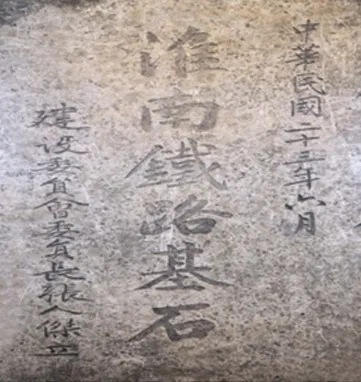 中華民國二十三年六月
淮南鐵路基石
建設委員會委員長張人傑立